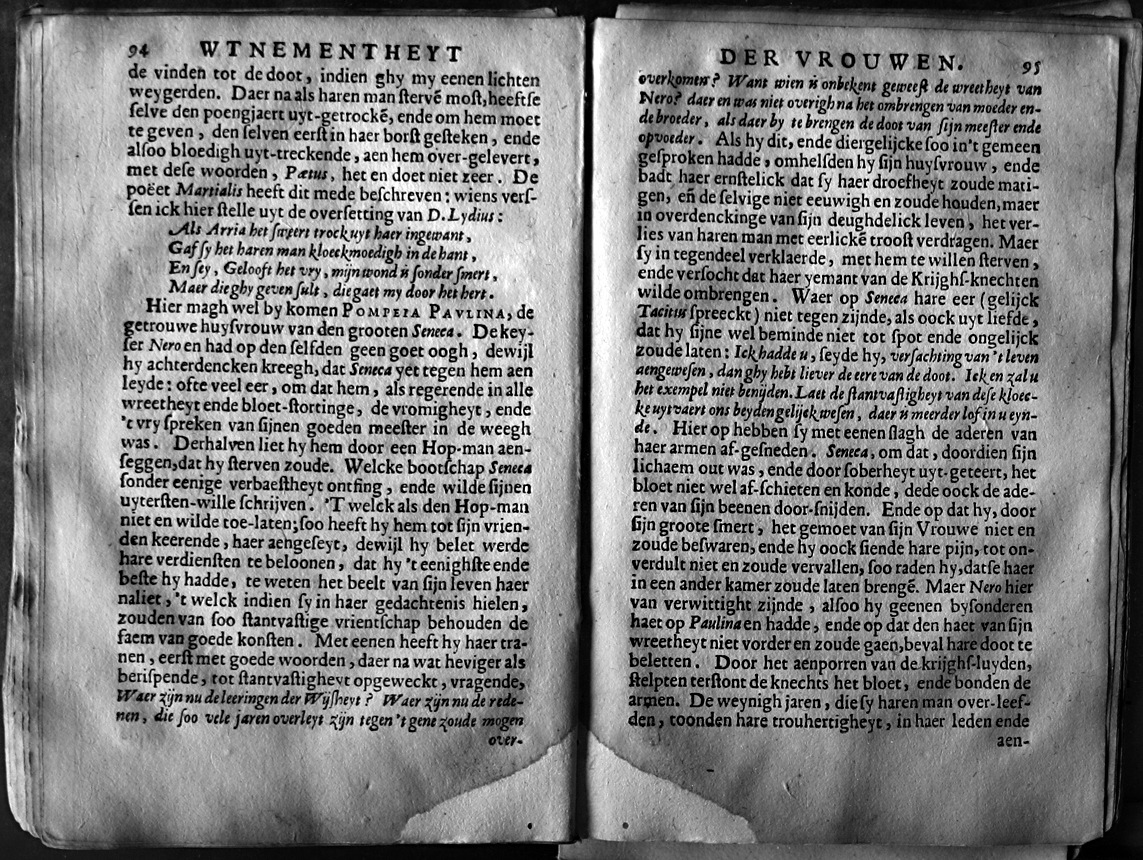 94 WTNEMENTHEYT
de vinden tot de doot, indien ghy my eenen lichten
weygerden. Daer na als haren man ſtervẽ moſt, heeftſe
ſelve den poengjaert uyt-getrockẽ, ende om hem moet
te geven, den ſelven eerſt in haer borſt geſteken, ende
alſoo bloedigh uyt-treckende, aen hem over-gelevert,
met deſe woorden, Pætus, het en doet niet zeer. De
poëet Martialis heeft dit mede beſchreven: wiens verſ-
ſen ick hier ſtelle uyt de overſetting van D. Lydius:
Als Arria het ſweert trock uyt haer ingewant,
Gaf ſy het haren man kloeckmoedigh in de hant,
En ſey, Gelooft het vry, mijn wond ń ſonder ſmert,
Maer die ghy geven ſult, die gaet my door het hert.
Hier magh wel by komen POMPEIA PAVLINA, de
getrouwe huyſvrouw van den grooten Seneca. De key-
ſer Nero en had op den ſelfden geen goet oogh, dewijl
hy achterdencken kreegh, dat Seneca yet tegen hem aen
leyde: ofte veel eer, om dat hem, als regerende in alle
wreetheyt ende bloet-ſtortinge, de vromigheyt, ende
't vry ſpreken van ſijnen goeden meeſter in de weegh
was. Derhalven liet hy hem door een Hop-man aen-
ſeggen, dat hy ſterven zoude. Welcke bootſchap Seneca
ſonder eenige verbaeſtheyt ontfing, ende wilde ſijnen
uyterſten-wille ſchrijven. 'T welck als den Hop-man
niet en wilde toe-laten; ſoo heeft hy hem tot ſijn vrien-
den keerende, haer aengeſeyt, dewijl hy belet werde
hare verdienſten te beloonen, dat hy 't eenighſte ende
beſte hy hadde, te weten het beelt van ſijn leven haer
naliet, 't welck indien ſy in haer gedachtenis hielen,
zouden van ſoo ſtantvaſtige vrientſchap behouden de
faem van goede konſten. Met eenen heeft hy haer tra-
nen, eerſt met goede woorden, daer na wat heviger als
beriſpende, tot ſtantvaſtigheyt opgeweckt, vragende,
Waer zijn nu de leeringen der Wijſheyt? Waer zijn nu de rede-
nen, die ſoo vele jaren overleyt zijn tegen 't gene zoude mogen
over-
DER VROUWEN. 95
overkomen? Want wien ń onbekent geweeſt de wreetheyt van
Nero? daer en was niet overigh na het ombrengen van moeder en-
de broeder, als daer by te brengen de doot van ſijn meeſter ende
opvoeder. Als hy dit, ende diergelijcke ſoo in't gemeen
geſproken hadde, omhelſden hy ſijn huyſvrouw, ende
badt haer ernſtelick dat ſy haer droefheyt zoude mati-
gen, eñ de ſelvige niet eeuwigh en zoude houden, maer
in overdenckinge van ſijn deughdelick leven, het ver-
lies van haren man met eerlickẽ trooſt verdragen. Maer
ſy in tegendeel verklaerde, met hem te willen ſterven,
ende verſocht dat haer yemant van de Krijghſ-knechten
wilde ombrengen. Waer op Seneca hare eer (gelijck
Tacitus ſpreeckt) niet tegen zijnde, als oock uyt liefde,
dat hy ſijne wel beminde niet tot ſpot ende ongelijck
zoude laten: Ick hadde u, ſeyde hy, verſachting van 't leven
aengeweſen, dan ghy hebt liever de eere van de doot. Ick en zal u
het exempel niet benijden. Laet de ſtantvaſtigheyt van deſe kloec-
ke uytvaert ons beyden gelijck weſen, daer ń meerder lof in u eyn-
de. Hier op hebben ſy met eenen ſlagh de aderen van
haer armen af-geſneden. Seneca, om dat, doordien ſijn
lichaem out was, ende door ſoberheyt uyt-geteert, het
bloet niet wel af-ſchieten en konde, dede oock de ade-
ren van ſijn beenen door-ſnijden. Ende op dat hy, door
ſijn groote ſmert, het gemoet van ſijn Vrouwe niet en
zoude beſwaren, ende hy oock ſiende hare pijn, tot on-
verdult niet en zoude vervallen, ſoo raden hy, datſe haer
in een ander kamer zoude laten brengẽ. Maer Nero hier
van verwittight zijnde, alſoo hy geenen byſonderen
haet op Paulina en hadde, ende op dat den haet van ſijn
wreetheyt niet vorder en zoude gaen, beval hare doot te
beletten. Door het aenporren van de krijghſ-luyden,
ſtelpten terſtont de knechts het bloet, ende bonden de
armen. De weynigh jaren, die ſy haren man over-leef-
den, toonden hare trouhertigheyt, in haer leden ende
aen-